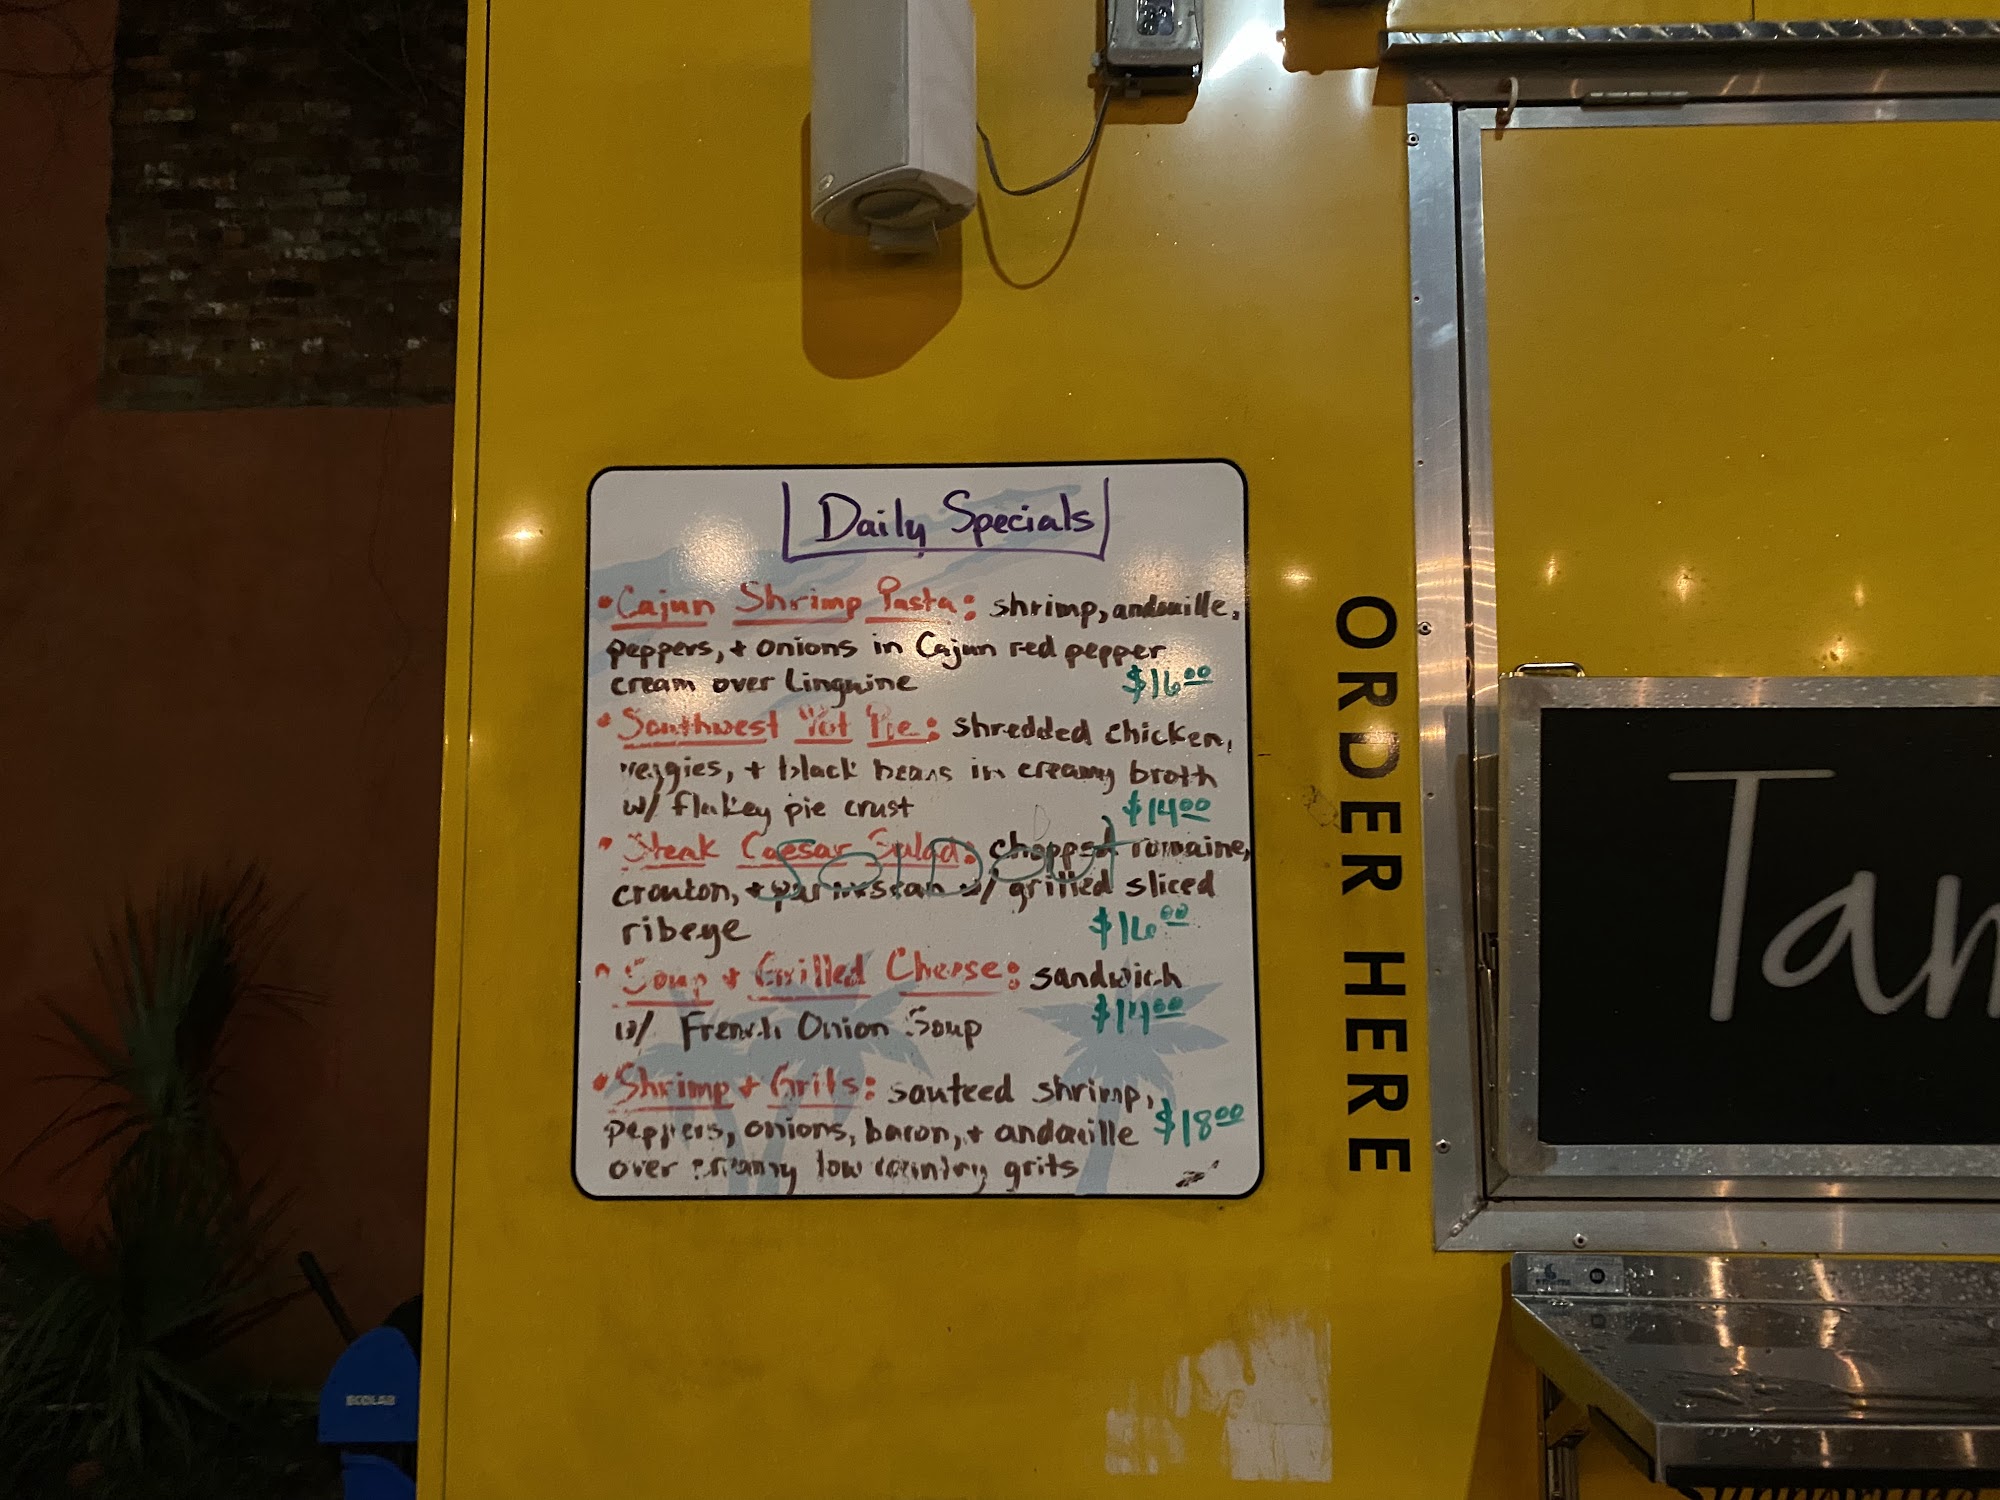 Daily Specials
• Cajun Shrimp Pasta: shrimp, andouille,
peppers, + onions in Cajun red pepper
cream over linguine $16.00
• Southwest Pot Pie: shredded chicken,
veggies, + black beans in creamy broth
w/ flakey pie crust $14.00
• Steak Caesar Salad: chopped romaine,
Sold Out
crouton, + parmesan w/ grilled sliced
ribeye $16.00
• Soup + Grilled Cheese: sandwich
w/ French Onion Soup $14.00
• Shrimp + Grits: sauteed shrimp,
peppers, onions, bacon, + andouille $18.00
over creamy low country grits
ORDER HERE
Tam
ECOLAB